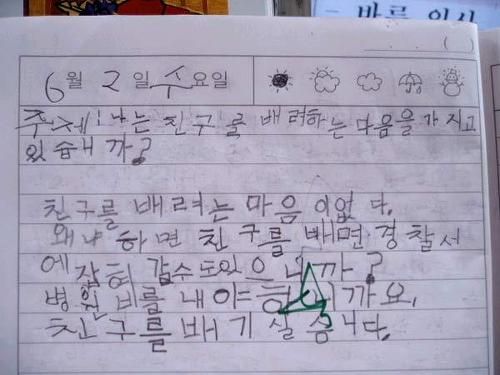 바른 인사
( )
6월 2일 수요일
주제:나는 친구를 배려하는 마음을 가지고
있습니까?
친구를 배려는 마음이없다.
왜냐하면 친구를 배면경찰서
에잡혀갈수도있으니까?
병원비를 내야하니까요.
친구를 배기실습니다.